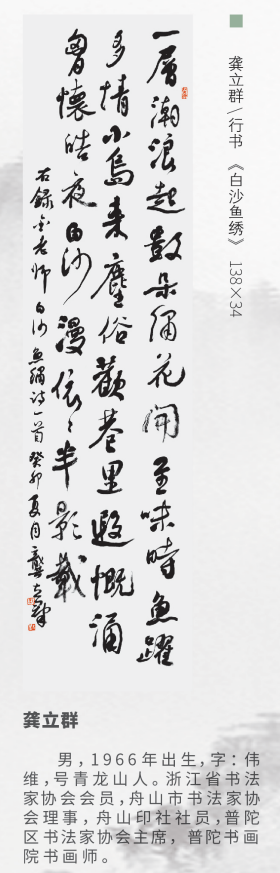 龚立群/行书 《白沙鱼绣》 138×34
一層潮浪起數朵繡花開至味時魚躍
多情小鳥來塵俗歡巷里遐慨涌
胷懷皓夜白沙漫依々半影載
右録金老师白沙魚繡詩一首癸卯夏月龔立群
龚立群
男,1966年出生,字：伟
维,号青龙山人。浙江省书法
家协会会员,舟山市书法家协
会理事,舟山印社社员,普陀
区书法家协会主席，普陀书画
院书画师。